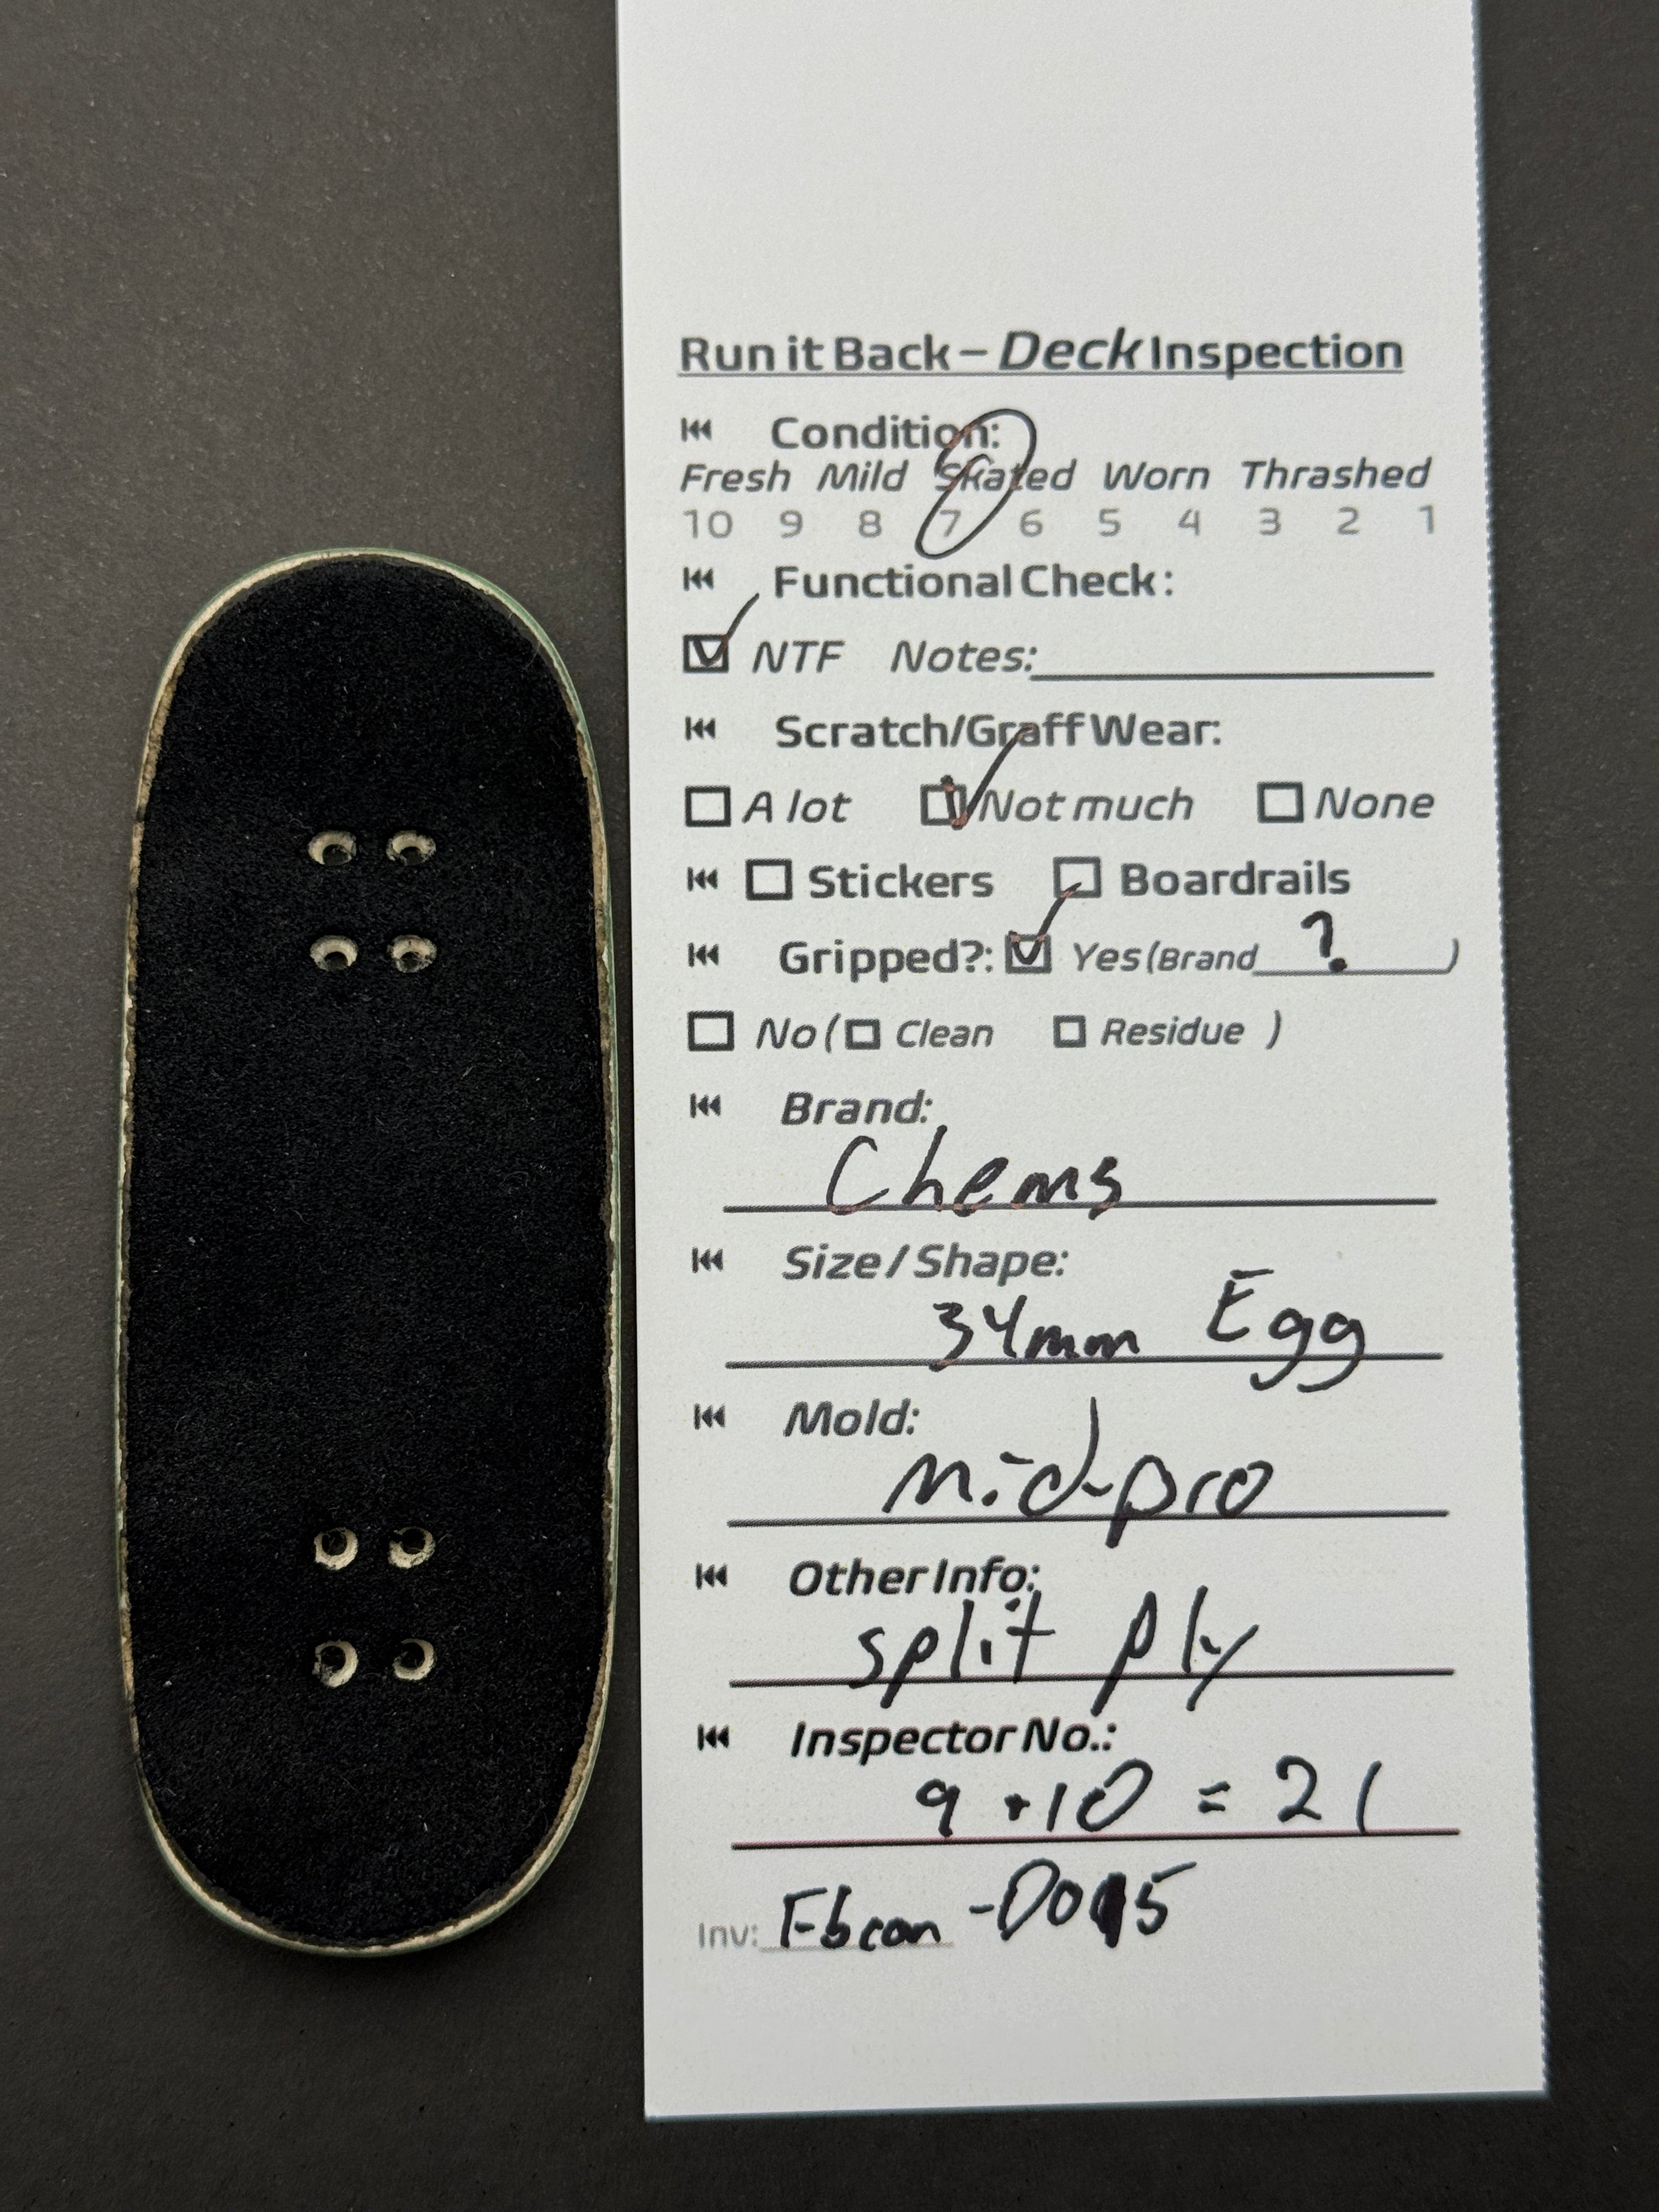 Run it Back – Deck Inspection
Condition:
Fresh Mild Skated Worn Thrashed
10 9 8 7 6 5 4 3 2 1
Functional Check:
NTF Notes:
Scratch/Graff Wear:
A lot Not much None
Stickers Boardrails
Gripped?: Yes (Brand ? )
No ( Clean Residue )
Brand:
Chems
Size / Shape:
34mm Egg
Mold:
Mid-pro
Other Info:
split ply
Inspector No.:
9 + 10 = 21
Inv: Fbcon -D015